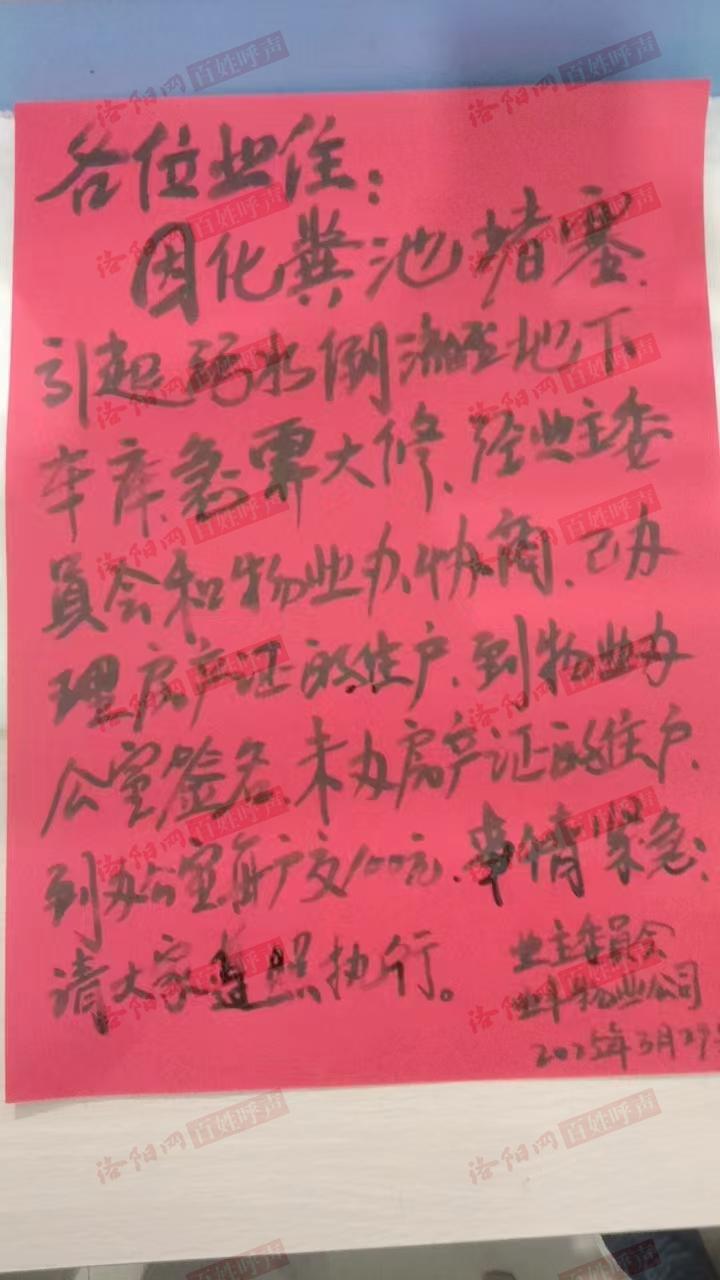 各位业住：
因化粪池堵塞.
引起污水倒流至地下
车库.急需大修.经业主委
員会和物业办协商.已办
理房产证的住户.到物业办
公室签名.未办房产证的住户.
到办公室每户交100元.事情紧急:
请大家遵照执行。
业主委員会
物业公司
2025年3月29
洛阳网 百姓呼声